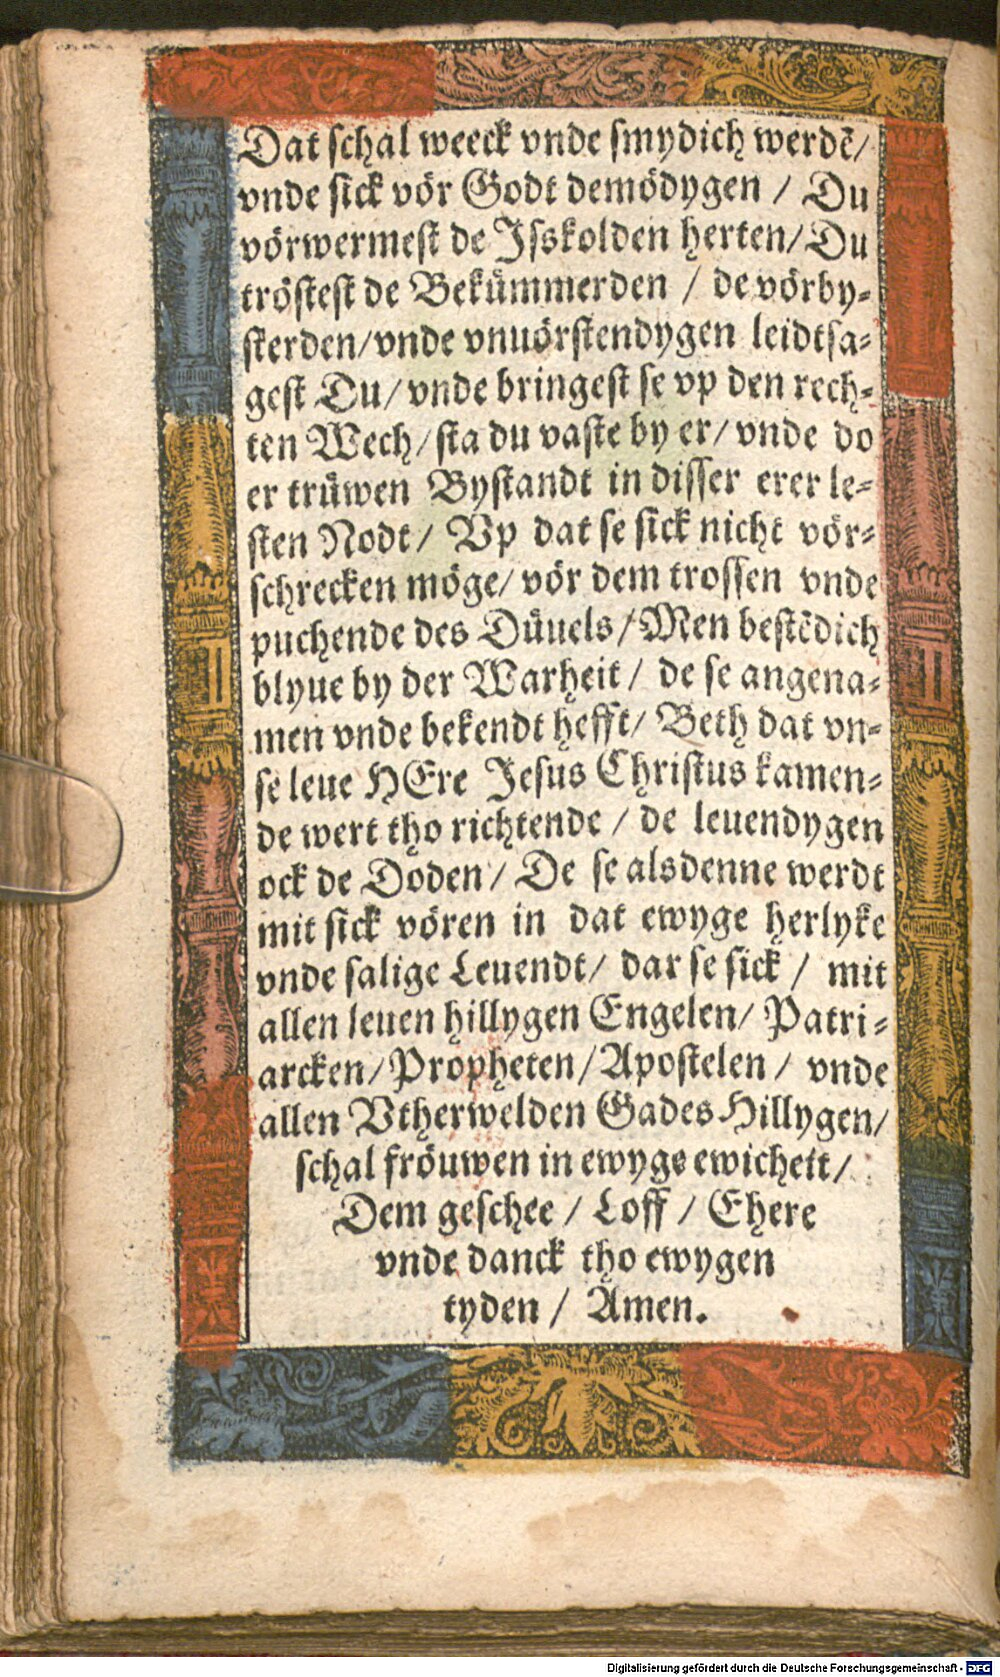 Dat schal weeck vnde smydich werdē/
vnde sick vör Godt demödygen / Du
vörwermest de Jsskolden herten/ Du
tröstest de Bekümmerden / de vörby-
sterden/ vnde vnuörstendygen leidtsa-
gest Du/ vnde bringest se vp den rech-
ten Wech/ sta du vaste by er/ vnde do
er trüwen Bystandt in disser erer le-
sten Nodt/ Vp dat se sick nicht vör-
schrecken möge/ vör dem trossen vnde
puchende des Düuels/ Men bestēdich
blyue by der Warheit/ de se angena-
men vnde bekendt hefft/ Beth dat vn-
se leue HEre Jesus Christus kamen-
de wert tho richtende / de leuendygen
ock de Doden/ De se alsdenne werdt
mit sick vören in dat ewyge herlyke
vnde salige Leuendt/ dar se sick / mit
allen leuen hillygen Engelen/ Patri-
arcken/ Propheten/ Apostelen / vnde
allen Vtherwelden Gades Hillygen/
schal fröuwen in ewyge ewicheit/
Dem geschee / Loff / Ehere
vnde danck tho ewygen
tyden / Amen.
Digitalisierung gefördert durch die Deutsche Forschungsgemeinschaft - DFG